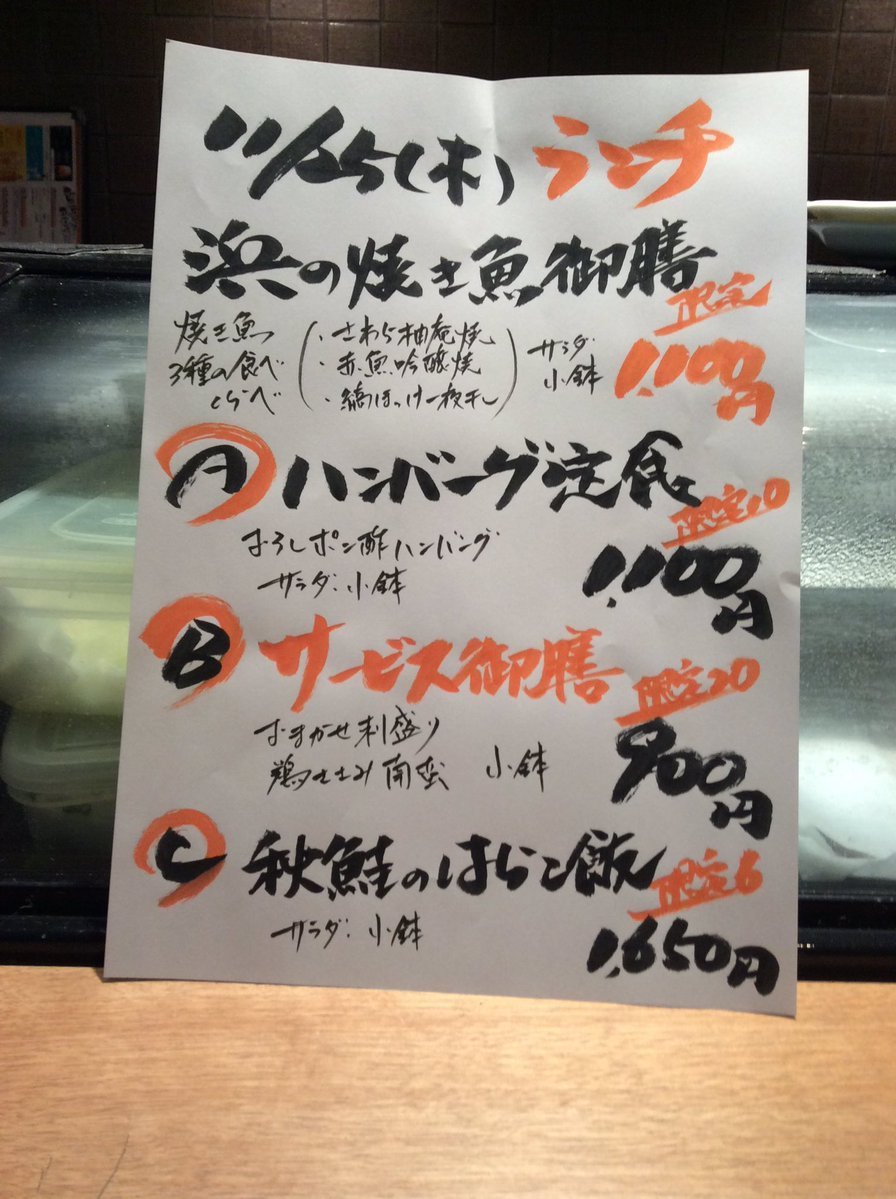 11/25(木) ランチ
浜の焼き魚御膳
限定
焼き魚
3種の食べ
くらべ
・さわら柚庵焼
・赤魚吟醸焼
・縞ほっけ一枚干し
サラダ
小鉢
1,100円
A ハンバーグ定食
限定10
おろしポン酢ハンバーグ
サラダ・小鉢
1,100円
B サービス御膳
限定20
おまかせ刺盛り
鶏ささみ南蛮 小鉢
900円
C 秋鮭のはらこ飯
限定6
サラダ・小鉢
1,650円